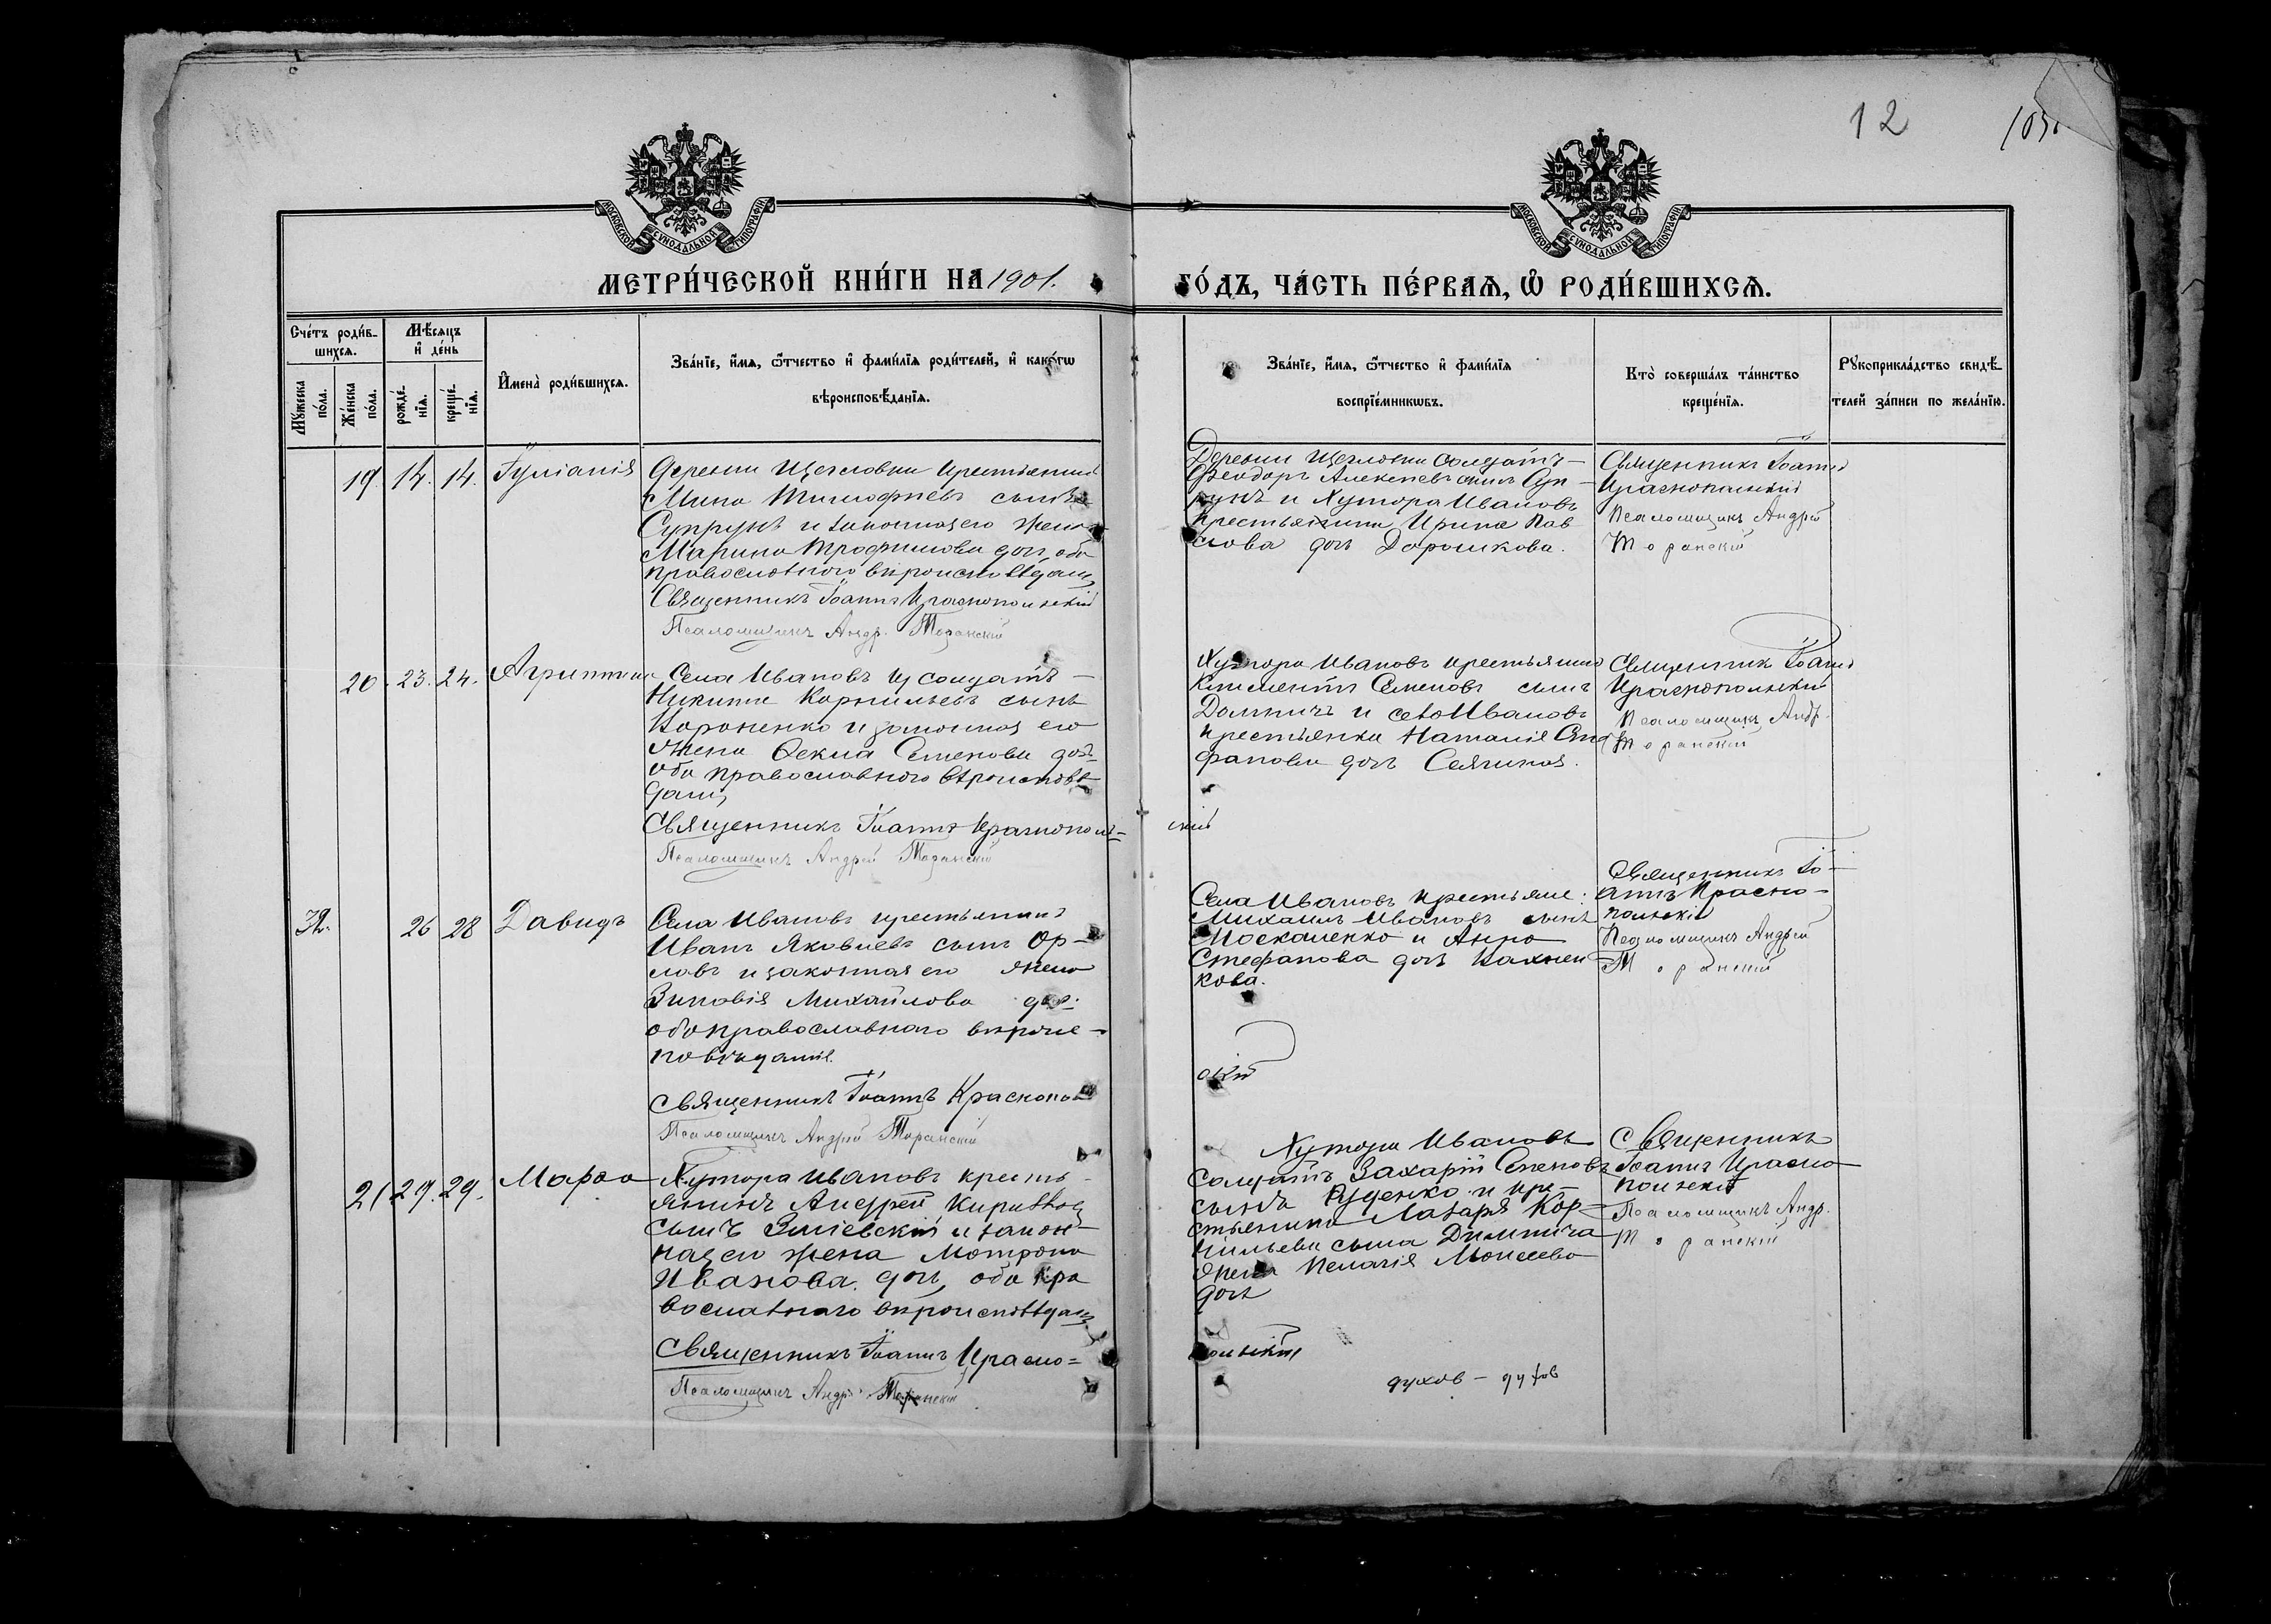 12
103
МОСКОВСКОЙ СѴНОДАЛЬНОЙ ТИПОГРАФІИ
МОСКОВСКОЙ СѴНОДАЛЬНОЙ ТИПОГРАФІИ
МЕТРИ́ЧЕСКОЙ КНИ́ГИ НА 1901.
ГО́ДЪ, ЧА́СТЬ ПЕ́РВАѦ, Ѡ РОДИ́ВШИХСѦ.
Сче́тъ роди́в-
шихсѧ.
Мѹжеска по́ла.
Же́нска по́ла.
Мѣсѧцъ
и де́нь
рожде́-
нїѧ.
креще́-
нїѧ.
Имена̀ роди́вшихсѧ.
Зва́нїе, и́мѧ, ѻ́тчество и фами́лїѧ роди́телей, и како́гѡ
вѣроисповѣ́данїѧ.
Зва́нїе, и́мѧ, ѻ́тчество и фами́лїѧ
воспрїе́мникѡвъ.
Кто̀ соверша́лъ та́инство
креще́нїѧ.
Рѹкоприкла́дство свидѣ́-
телей за́писи по жела́нїю.
19 14. 14. Іуліанія
Деревни Щегловки крестьянинъ
Мина Тимофіевъ сынъ
Супрунъ и законная его жена
Марина Трофимова доч, оба
православного вѣроисповѣдан,
Священникъ Іоаннъ Краснопольскій
Псаломщикъ Андр. Торанскій
Деревни Щегловки солдатъ
Феодоръ Алексѣевъ сынъ Суп-
рунъ и Хутора Ивановъ
крестьянина Ирина Пав
лова доч Дорошкова.
Священникъ Іоаннъ
Краснопольскій
Псаломщикъ Андрей
Торанскій
20. 23. 24. Агриппина
Села Ивановъ солдатъ
Никита Корнильевъ сынъ
Вороненко и законная его
жена Ѳекла Семенова доч.
оба православного вѣроисповѣ-
дан,
Священникъ Іоаннъ Краснополь-
скій
Псаломщикъ Андрей Торанскій
Хутора Ивановъ крестьянинъ
Климентъ Семеновъ сынъ
и села Ивановъ
крестьянка Наталія Сте
фанова доч
Священник Іоаннъ
Краснопольскій
Псаломщикъ Андр.
Торанскій
26 28 Давидъ
Села Ивановъ крестьянинъ
Иванъ Яковлевъ сынъ Ор-
ловъ и законная его жена
Зиновія Михайлова доч.
оба православнаго вѣроис-
повѣданія.
Священникъ Іоаннъ Краснополь
скій
Псаломщикъ Андрей Торанскій
Села Ивановъ крестьяне:
Михаилъ Ивановъ сынъ
Москаленко и Анна
Стефанова доч
кова.
Священникъ Іо-
аннъ Красно-
польскій
Псаломщикъ Андрей
Торанскій
21 29. 29. Марѳа
Хутора Ивановъ кресть-
янинъ Андрей
сынъ Зміевскій и закон-
ная его жена Матрона
Иванова доч, оба пра
вославнаго вѣроисповѣдан,
Священникъ Іоаннъ Красно=
польскій
Псаломщикъ Андр. Торанскій
Хутора Ивановъ
солдатъ Захарій Семеновъ
сынъ Руденко и кре-
стьянина Лазаря Кор-
нильева сына
жена Пелагія Моисеева
доч
Священникъ
Іоаннъ Красно
польскій
Псаломщикъ Андр.
Торанскій